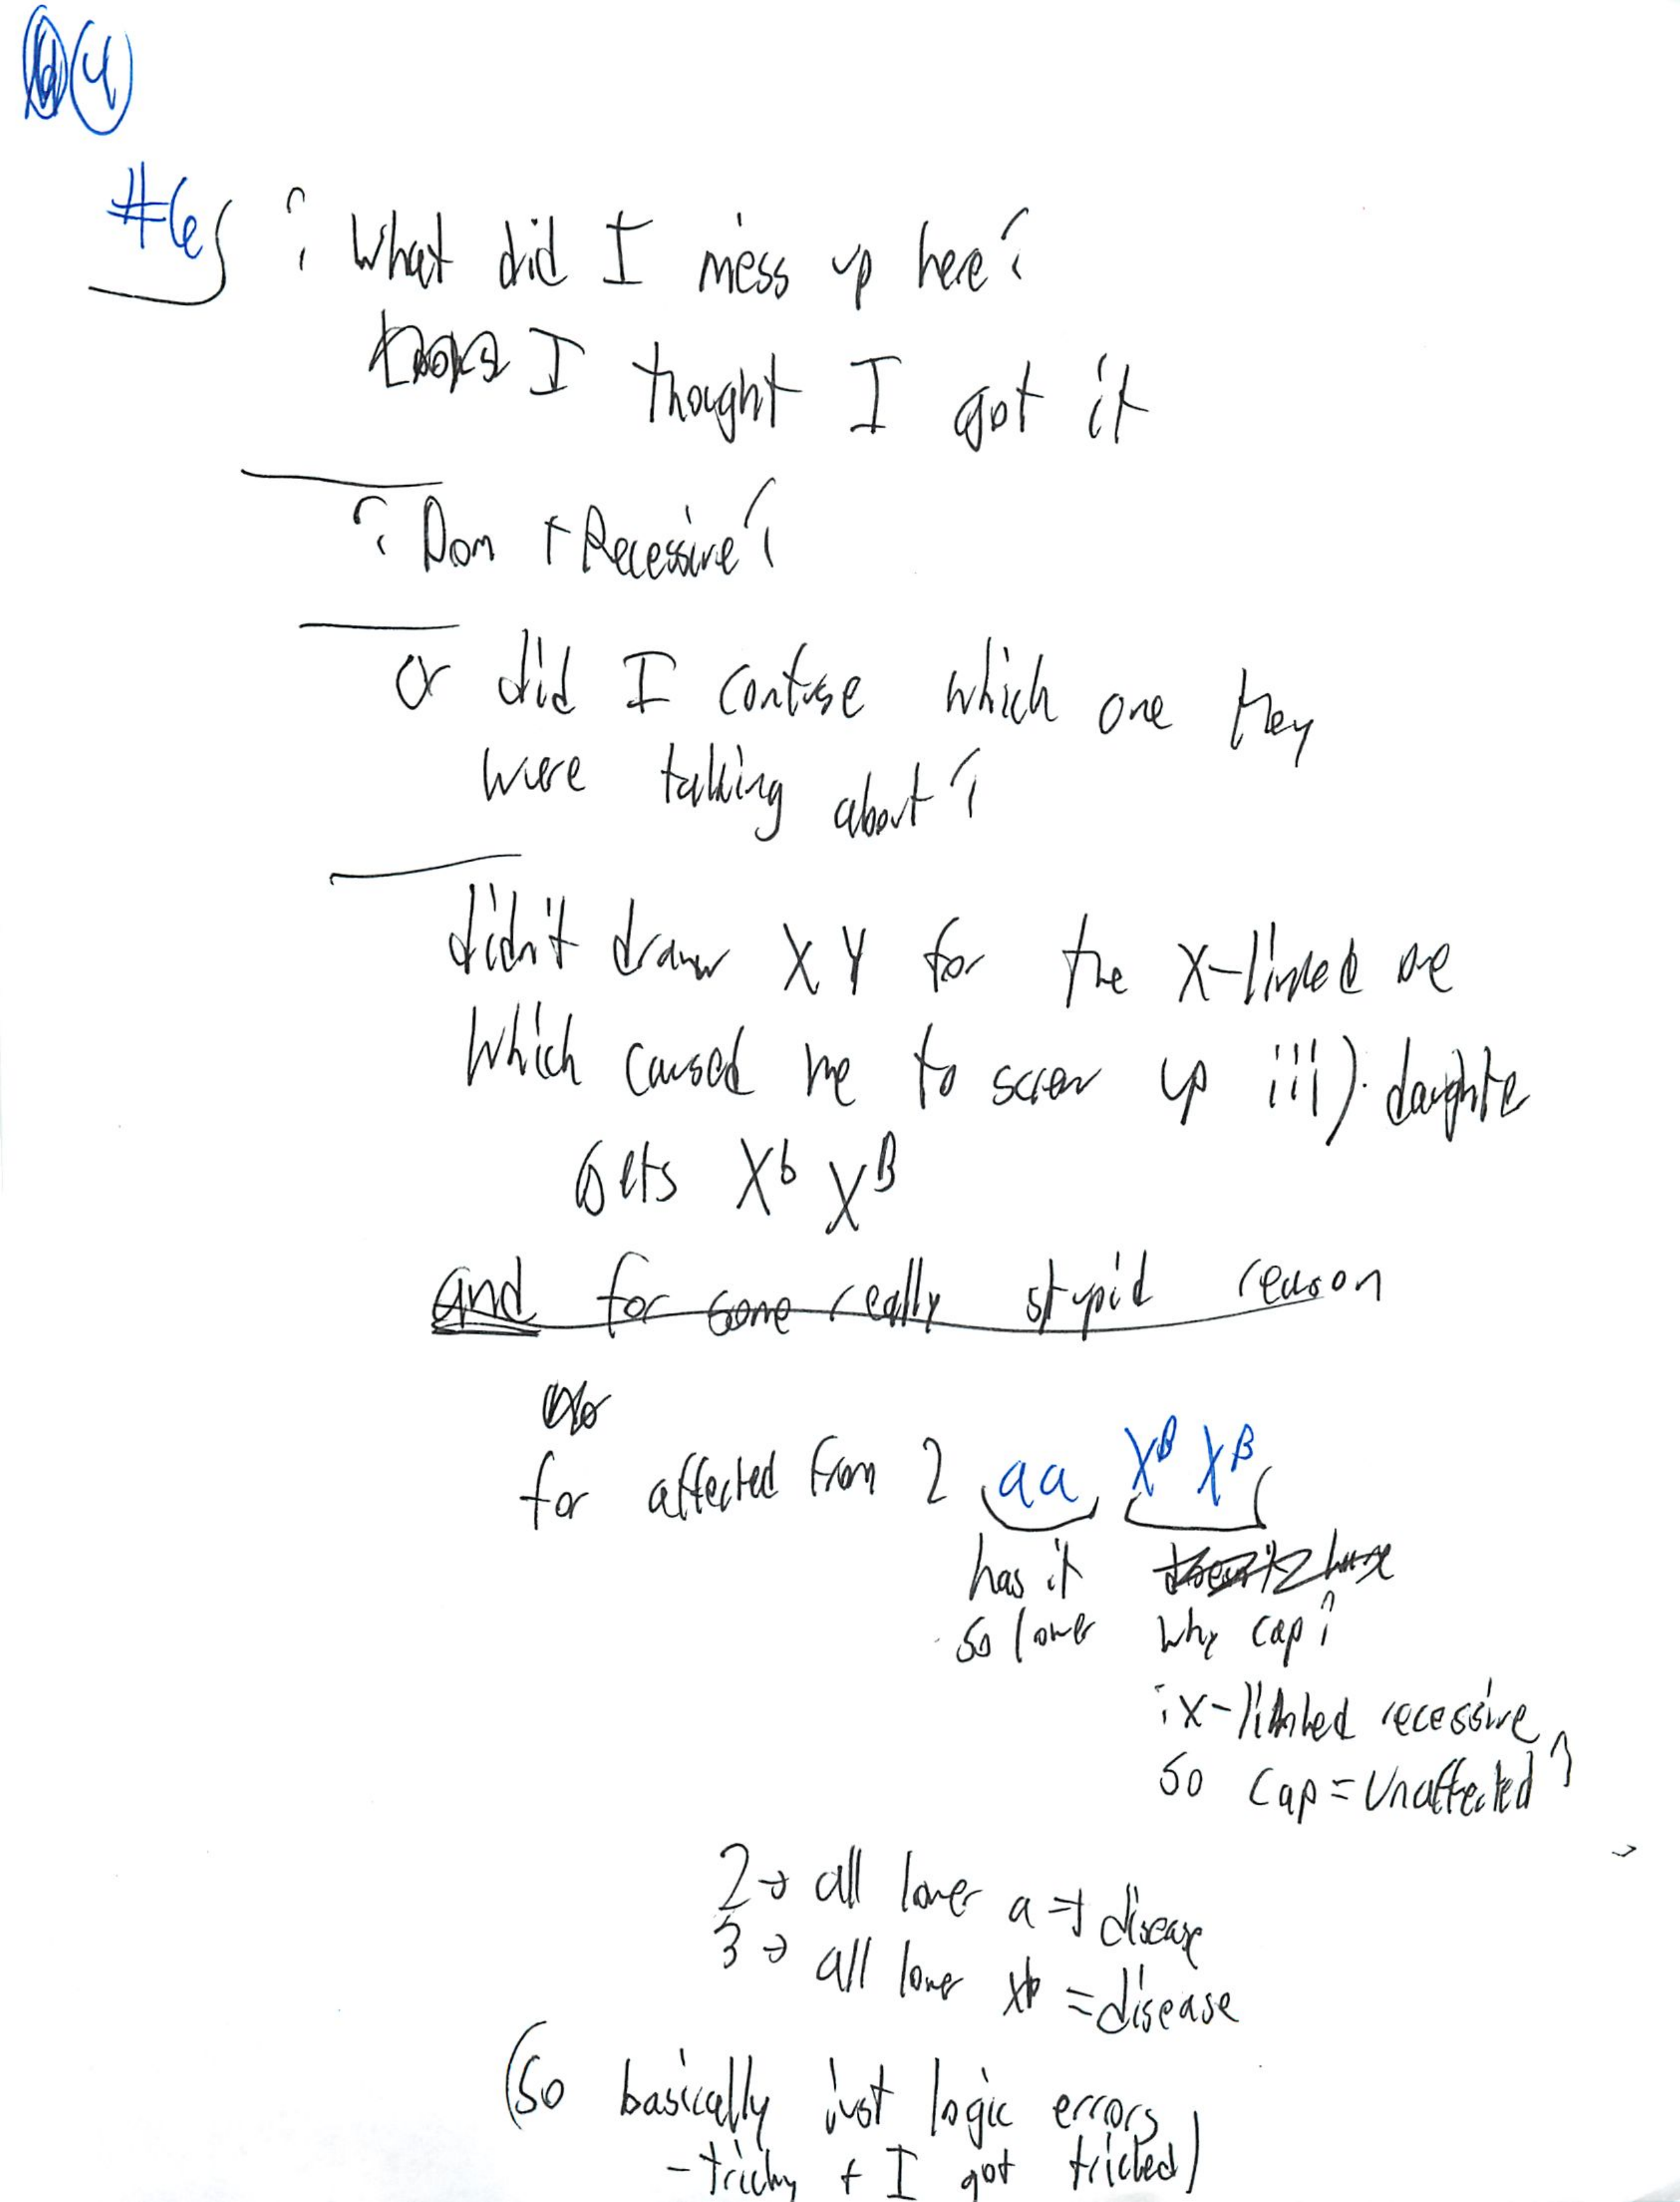 (4)
#6
¿ What did I mess up here?
I thought I got it
¿ Dom + Recessive?
or did I confuse which one they
were talking about?
didn't draw XY for the X-linked one
which caused me to screw up iii). daughter
Gets Xᵇ Xᴮ
and for some really stupid reason
for affected from 2 aa Xᴮ Xᴮ
has it
so lower why cap?
¿x-linked recessive
so cap = Unaffected?
2 → all lower a => disease
3 → all lower xb = disease
(so basically just logic errors
- tricky + I got tricked)